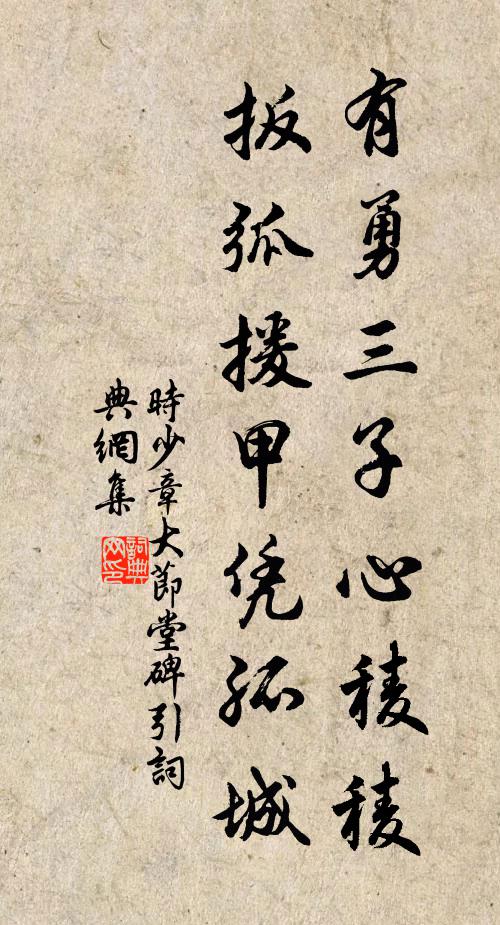 有勇三子心稜稜
扳弧援甲凭孤城
時少章大節堂碑引詞
典網集
詞典
网印